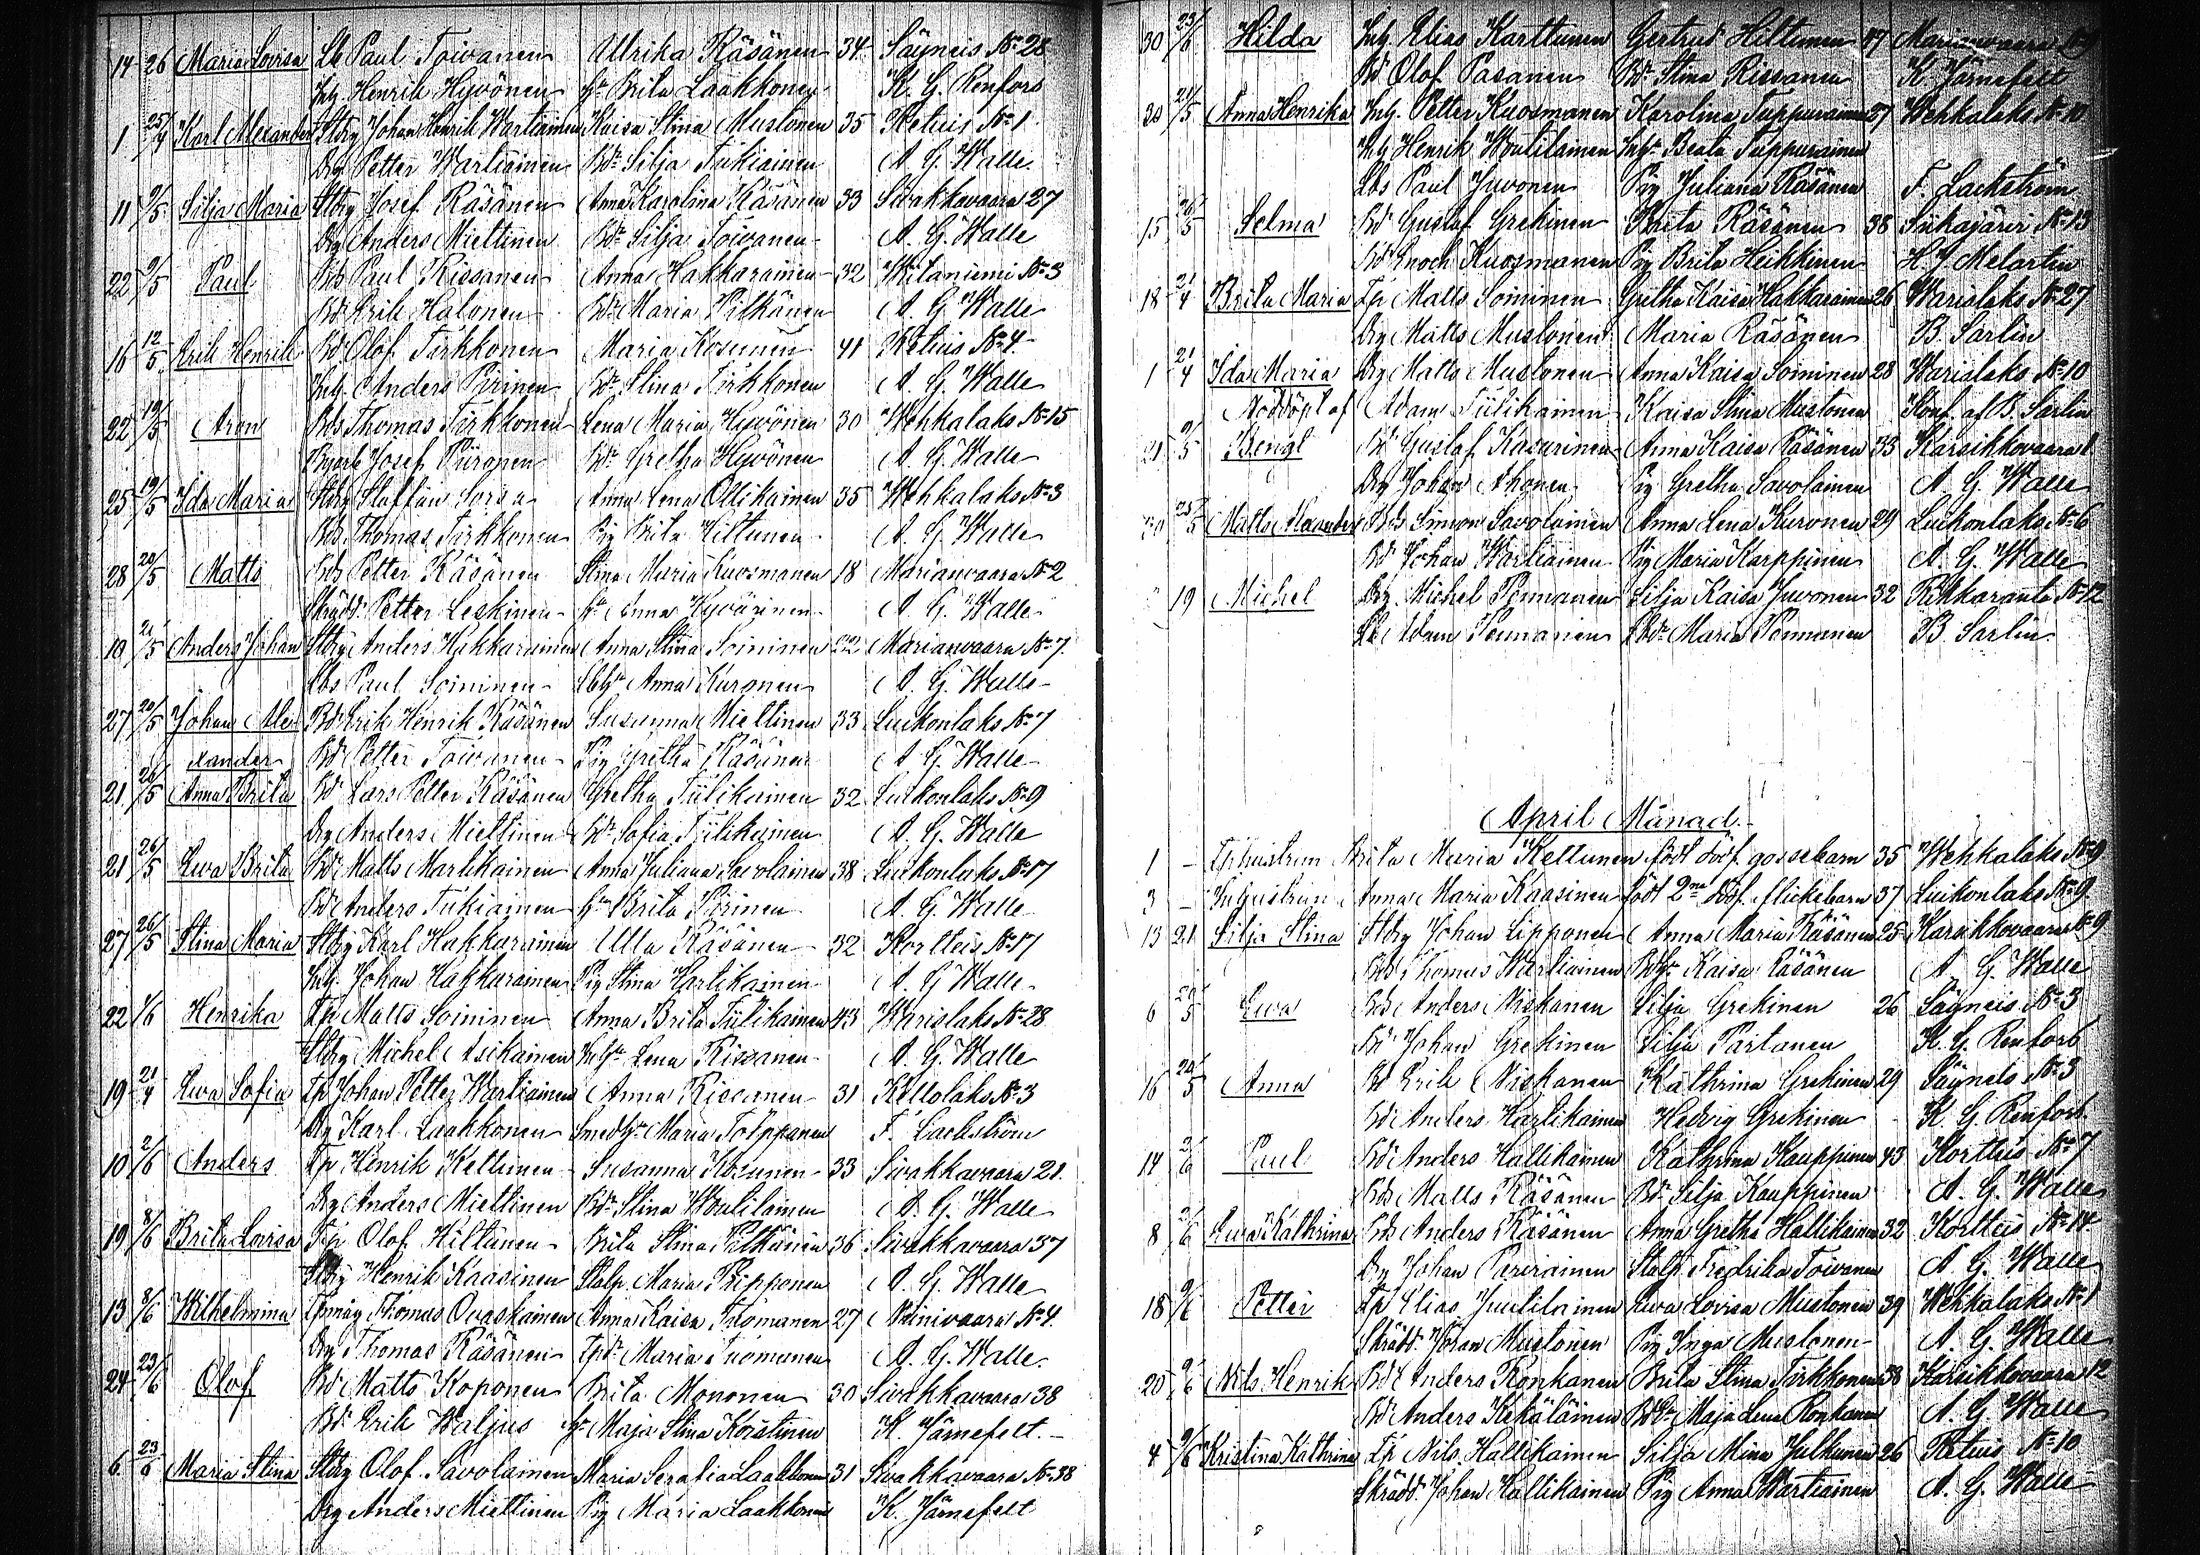 14 26 Maria Lovisa Lb Paul Toivanen Ullrika Räsänen 34 Säyneis No 28
Inh. Henrik Hyvönen Hu Brita Laakkonen K. G. Renfors
1 25/4 Karl Alexander Stdrg Johan Henrik Wartiainen Kaisa Stina Mustonen 35 Retuis No 1
Drg Petter Wartiainen Bdr Silja Tukiainen A. G. Walle
11 9/5 Silja Maria Stdrg Josef Räsänen Anna Karolina Räsänen 33 Sivakkavaara 27
Drg Anders Miettinen Bdr Silja Toivanen A. G. Walle
22 9/5 Paul Bds Paul Rissanen Anna Hakkarainen 32 Niilaniemi No 3
Bd Erik Halonen Bdr Maria Pitkänen A. G. Walle
16 12/5 Erik Henrik Bd Olof Tirkkonen Maria Kosunen 41 Retuis No 4
Inh. Anders Pirinen Bdr Stina Tirkkonen A. G. Walle
22 19/5 Aron Bds Thomas Tirkkonen Lena Maria Hyvönen 30 Wehkalaks No 15
Josef Piironen Bdr Gretha Hyvönen A. G. Walle
25 19/5 Ida Maria Stdrg Staffan Sorsa Anna Lena Ollikainen 35 Wehkalaks No 3
Bds Thomas Tirkkonen Pig Brita Hiltunen A. G. Walle
28 20/5 Matts Bds Petter Räsänen Stina Maria Kuosmanen 18 Marianvaara No 2
Skrädd. Petter Leskinen Hu Anna Hyvärinen A. G. Walle
10 21/5 Anders Johan Stdrg Anders Hakkarainen Anna Stina Soininen 22 Marianvaara No 7
Lbs Paul Soininen Anna Kuronen A. G. Walle
27 20/5 Johan Ale- Bd Erik Henrik Räsänen Susanna Miettinen 33 Luikonlaks No 7
xander Bd Petter Toivanen Pig Gretha Räsänen A. G. Walle
21 26/5 Anna Brita Bd Lars Petter Räsänen Gretha Tiilikainen 32 Luikonlaks No 9
Drg Anders Miettinen Bdr Sofia Tiilikainen A. G. Walle
21 26/5 Ewa Brita Bd Matts Martikainen Anna Juliana Savolainen 38 Luikonlaks No 17
Bd Anders Tukiainen Hu Brita Pirinen A. G. Walle
27 26/5 Stina Maria Stdrg Karl Hakkarainen Ulla Räsänen 32 Kortteis No 17
Inh. Johan Hakkarainen Pig Stina Hartikainen A. G. Walle
22 1/6 Henrika Tp Matts Soininen Anna Brita Tiilikainen 43 Warislaks No 28
Stdrg Michel Asikainen Lena Rissanen A. G. Walle
19 21/4 Ewa Sofia Tp Johan Petter Wartiainen Anna Rissanen 31 Kellolaks No 3
Drg Karl Laakkonen Maria Tolppanen F. Lackström
10 2/6 Anders Tp Henrik Kettunen Susanna Kosunen 33 Sivakkavaara 21
Drg Anders Miettinen Bdr Stina Woutilainen A. G. Walle
19 8/6 Brita Lovisa Tp Olof Hiltunen Brita Stina Pitkänen 36 Sivakkavaara 37
Stdrg Henrik Kaasinen Maria Ripponen A. G. Walle
13 8/6 Wilhelmina Thomas Ovaskainen Anna Kaisa Tuomanen 27 Niinivaara No 4
Drg Thomas Räsänen Tpdr Maria Tuomanen A. G. Walle
24 23/6 Olof Bd Matts Koponen Brita Mononen 30 Sivakkavaara 38
Bd Erik Waljus Hu Maja Stina Koistinen K. Järnefelt
6 23/6 Maria Stina Stdrg Olof Savolainen Maria Serafia Laakkonen 31 Sivakkavaara No 38
Drg Anders Miettinen Pig Maria Laakkonen K. Järnefelt
30 23/6 Hilda Inh. Elias Karttunen Gertrud Hiltunen 47 Marianvaara
Bd Olof Pasanen Bdr Stina Rissanen K Järnefelt
20 21/5 Anna Henrika Inh. Petter Kuosmanen Karolina Tuppurainen 27 Wehkalaks No 10
Inh Henrik Woutilainen Beata Tuppurainen
Lbs Paul Juvonen Pig Juliana Räsänen F. Lackström
15 26/5 Selma Bd Gustaf Grekinen Brita Räsänen 38 Siikajärvi No 13
Bd Enoch Kuosmanen Pig Brita Heikkinen H J Melartin
18 21/4 Brita Maria Tp Matts Soininen Gretha Kaisa Hakkarainen 26 Warislaks No 27
Drg Matts Mustonen Maria Räsänen B. Sarlin
1 21/4 Ida Maria Drg Matts Mustonen Anna Kaisa Soininen 28 Warislaks No 10
Nöddöpt af Adam Tiilikainen Kaisa Stina Mustonen Konf. af B. Sarlin
21 9/5 Bengt Bd Gustaf Kasurinen Anna Kaisa Räsänen 33 Karsikkovaara 1
Drg Johan Ahonen Pig Gretha Savolainen A. G. Walle
25/5 Matts Alexander Bds Simon Savolainen Anna Lena Kuronen 29 Luikonlaks No 6
Bd Johan Wartiainen Pig Maria Karppinen A. G. Walle
19 Michel Drg. Michel Pennanen Silja Kaisa Juvonen 32 Rikkaranta No 12
Lb Adam Pennanen Lbdr Maria Pennanen B. Sarlin
April Månad.
1 – Brita Maria Kettunen född dödf. gossebarn 35 Wehkalaks No 9
3 – Anna Maria Kaasinen född 2ne dödf. flickebarn 37 Luikonlaks No 9
13 21 Silja Stina Stdrg Johan Lipponen Anna Maria Räsänen 25 Karsikkovaara No 9
Bds Thomas Wartiainen Kaisa Räsänen A. G. Walle
6 20/5 Ewa Bds Anders Niskanen Silja Grekinen 26 Säyneis No 3
Bd Johan Grekinen Silja Partanen K. G. Renfors
16 20/5 Anna Bd Erik Niskanen Kathrina Grekinen 29 Säyneis No 3
Bd Anders Hartikainen Hedvig Grekinen K. G. Renfors
14 2/6 Paul Bd Anders Hallikainen Kathrina Kauppinen 43 Kortteis No 7
Bds Matts Räsänen Bdr Silja Kauppinen A. G. Walle
8 2/6 Ewa Kathrina Bds Anders Räsänen Anna Gretha Hallikainen 32 Kortteis No 14
Drg Johan Parviainen Fredrika Toivanen A. G. Walle
18 9/6 Petter Tp Elias Juutilainen Ewa Lovisa Mustonen 39 Wehkalaks No 1
Skrädd. Johan Mustonen Pig Inga Mustonen A. G. Walle
20 9/6 Nils Henrik Bd Anders Ronkanen Brita Stina Tirkkonen 38 Karsikkovaara 12
Bd Anders Kekäläinen Maja Lena Ronkanen A. G. Walle
4 9/6 Kristina Kathrina Tp Nils Hallikainen Silja Mina Julkunen 26 Retuis No 10
Skrädd. Johan Hallikainen Pig Anna Wartiainen A. G. Walle